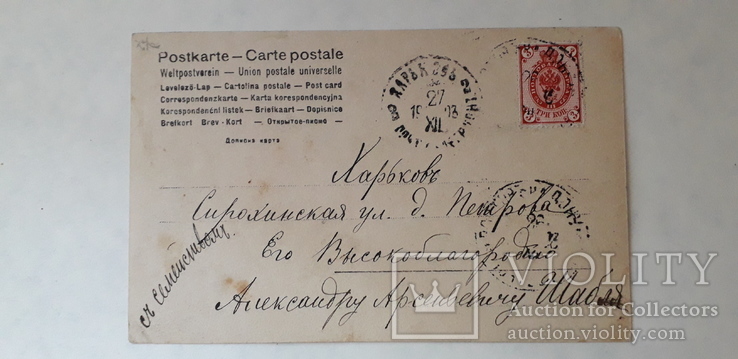 Postkarte — Carte postale
Weltpostverein — Union postale universelle
Levelező-Lap — Cartolina postale — Post card
Correspondenzkarte — Karta korespondencyjna
Korespondenční listek — Briefkaart — Dopisnice
Brefkort Brev-Kort — Открытое-письмо —
Дописна карта
ХАРЬКОВЪ
27
XII
3 3
ТРИ КОП.
Харьковъ
Сирохинская ул. д. Петрова
Его Высокоблагородию
Александру Арсеньевичу Шабля
съ семействомъ
VIOLITY
Auction for Collectors
auction.violity.com